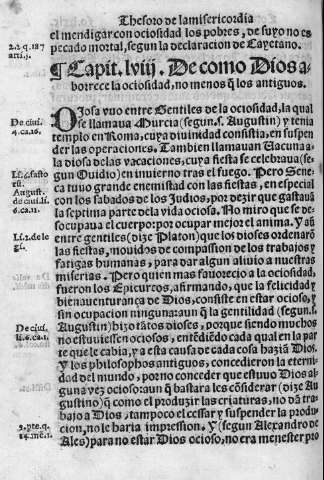 Thesoro de la misericordia
el mendigar con ociosidad los pobres, de suyo no es
2.2.q.187
arti.5.
pecado mortal, segun la declaracion de Cayetano.
¶ Capit. lviij. De como Dios a-
borrece la ociosidad, no menos q̃ los antiguos.
OJosa vuo entre Gentiles de la ociosidad, la qual
De ciui.
4.ca.16.
se llamaua Murcia (segun.s. Augustin) y tenia
templo en Roma, cuya diuinidad consistia, en suspen
der las operaciones. Tambien llamauan Uacuna a
la diosa de las vacaciones, cuya fiesta se celebraua (se-
Li.6.fasto
gun Ouidio) en inuierno tras el fuego. Pero Sene-
August.
de ciui.li.
6.ca.11.
ca tuuo grande enemistad con las fiestas, en especial
con los sabados de los Judios, por dezir que gastauã
la septima parte de la vida ociosa. No miro que se de-
socupaua el cuerpo: por ocupar mejor el anima. Y aũ
Li.2.de le
gi.
entre gentiles (dize Platon) que los dioses ordenarõ
las fiestas, mouidos de compassion de los trabajos y
fatigas humanas, para dar algun aliuio a nuestras
miserias. Pero quien mas fauorecio a la ociosidad,
fueron los Epicureos, afirmando, que la felicidad y
bienauenturança de Dios, consiste en estar ocioso, y
sin ocupacion ninguna: aun q̃ la gentilidad (segun.s.
De ciui.
li.6.ca.1.
Augustin) hizo tãtos dioses, porque siendo muchos
no estuuiessen ociosos, entẽdiẽdo cada qual en la par
te que le cabia, y a esta causa de cada cosa haziã Dios.
Y los philosophos antiguos, concedieron la eterni-
dad del mundo, por no conceder que estuuo Dios al-
guna vez ocioso: aun q̃ bastara les cõsiderar (dize Au
gustino) q̃ como el produzir las criaturas, no dã tra-
bajo a Dios, tampoco el cessar y suspender la produ-
2.pte.q.
14.mẽ.1.
cion, no le haria impression. Y (segun Alexandro de
Ales) para no estar Dios ocioso, no era menester pro